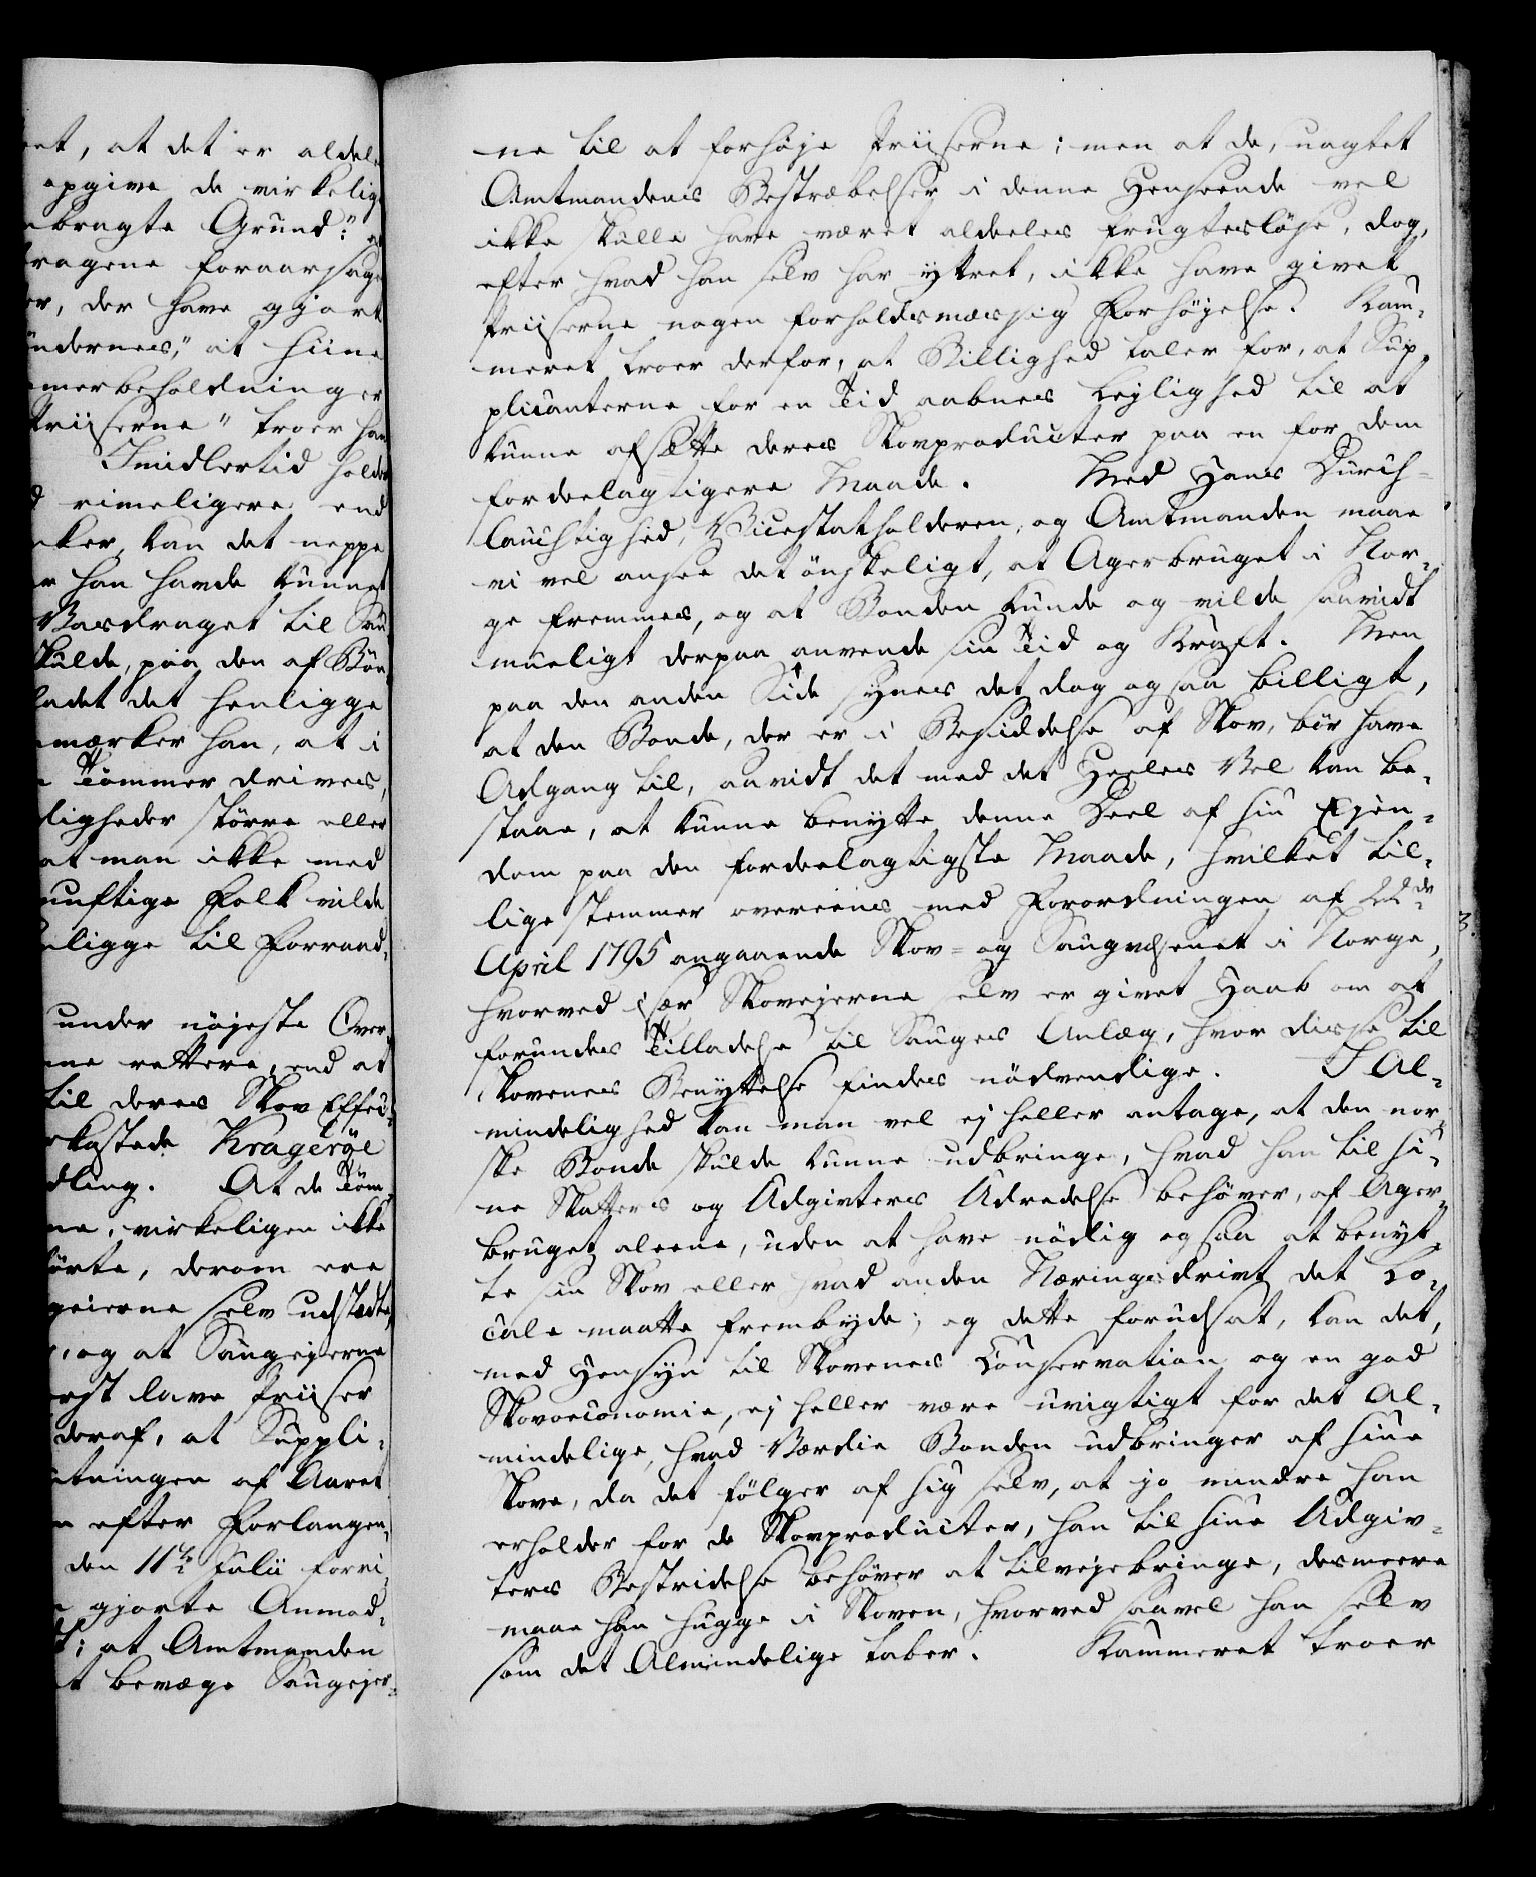 et, at det er aldel-
opgive de virkelig
bragte Grund:" 
dragene foraarsage
er, der have gjort
ndernes," at hiine
merbeholdninger
Priiserne" troer han
Imidlertid holder
rimeligere, end
ker, kan det neppe
r han havde kunnet
Vasdraget til Sau
skulde, paa den af Bøn
ladet det henligge
mærker han, at i
Tømmer drives,
ligheder større eller
at man ikke med
nuftige Folk vilde
ligge til Forraad-
under nøjeste Over
ne rettere, end at
til deres Skov Effec-
kastede Kragerøe
dling. At de Töm
ne, virkeligen ikke
førte, derom ere
geierne selv udstædte,
, og at Saugejerne
erst lave Priiser
deraf, at Suppli-
tningen af Aaret
efter Forlangen-
den 11te Julii forri-
gjorte Anmod-
t; at Amtmanden
t bevæge Saugejer-
ne til at forhöje Priiserne; men at de, uagtet
Amtmandens Bestræbelser i denne Henseende vel
ikke skulle have været aldeeles frugteslöse, dog,
efter hvad han selv har yttret, ikke have givet
Priiserne nogen forholdsmæssig Forhöyelse. Kam-
meret troer derfor, at Billighed taler for, at Sup-
plicanterne for en Tid aabnes Lejlighed til at
kunne afsætte deres Skovproducter paa en for dem
fordeelagtigere Maade. Med Hans Durch-
lauchtighed, Vicestatholderen, og Amtmanden maae
vi vel ansee det önskeligt, at Agerbruget i Nor-
ge fremmes, og at Bonden kunde og vilde saavidt
mueligt derpaa anvende sin Tid og Kraft. Men
paa den anden Side synes det dog ogsaa billigt,
at den Bonde, der er i Besiddelse af Skov, bör have
Adgang til, saavidt det med det Heeles Vel kan be-
staae, at kunne benytte denne Deel af sin Ejen-
dom paa den fordeelagtigste Maade, hvilket til-
lige stemmer overeens med Forordningen af 22de
April 1795 angaaende Skov- og Saugvæsenet i Norge,
hvorved især Skovejerne selv er givet Haab om at
forundes Tilladelse til Sauges Anlæg, hvor disse til
Skovenes Benyttelse findes nödvendige. I Al-
mindelighed kan man vel ej heller antage, at den nor-
ske Bonde skulde kunne udbringe, hvad han til si-
ne Skatters og Udgivters Udredelse behöver, af Ager-
bruget aleene, uden at have nödig ogsaa at benyt-
te sin Skov eller hvad anden Næringsdrivt det Lo-
cale maatte frembyde; og dette forudsat, kan det,
med Hensyn til Skovenes Conservation og en god
Skovoeconomie, ej heller være uvigtigt for det Al-
mindelige, hvad Værdie Bonden udbringer af sine
Skove, da det fölger af sig selv, at jo mindre han
erholder for de Skovproducter, han til sine Udgiv-
ters Bestridelse behöver at tilvejebringe, desmeere
maae han hugge i Skoven, hvorved saavel han selv
som det Almindelige taber. Kammeret troer
3.